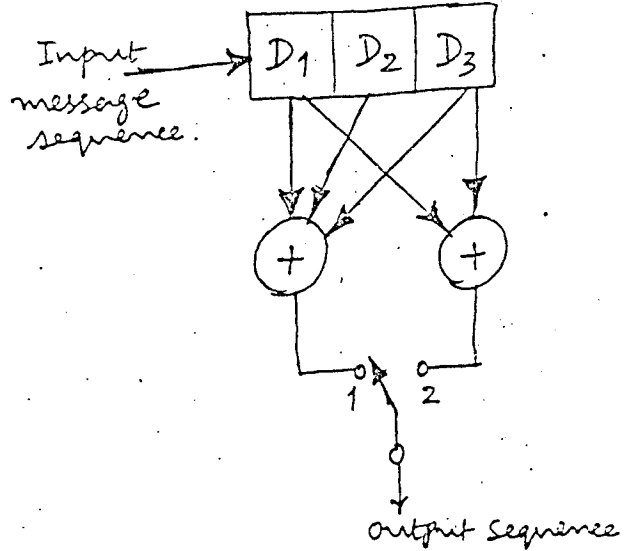 Input
message
sequence:
D1 D2 D3
+ +
1 2
output sequence